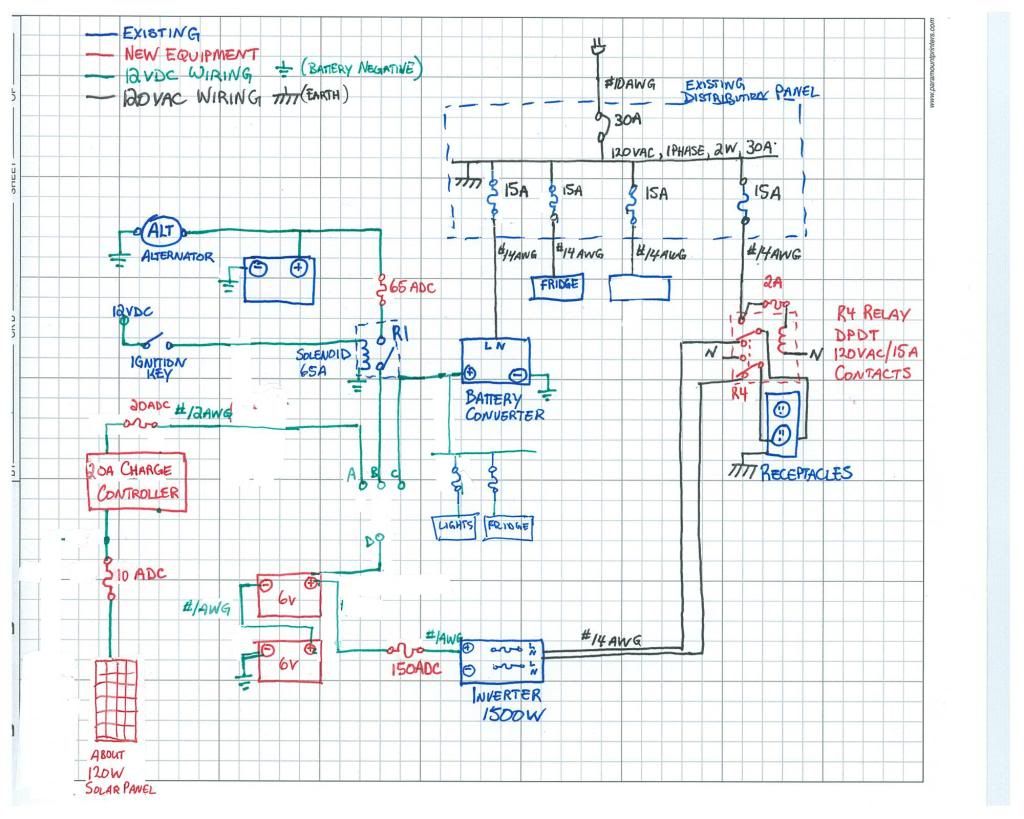 EXISTING
NEW EQUIPMENT
12VDC WIRING (BATTERY NEGATIVE)
120VAC WIRING (EARTH)
www.paramountprinters.com
#10AWG
EXISTING
DISTRIBUTION PANEL
30A
120VAC, 1PHASE, 2W, 30A
15A
15A
15A
15A
#14AWG
#14AWG
#14AWG
#14AWG
ALT
ALTERNATOR
- +
65 ADC
FRIDGE
2A
12VDC
IGNITION
KEY
SOLENOID
65A
R1
L N
+ -
BATTERY
CONVERTER
R4 RELAY
DPDT
120VAC/15A
CONTACTS
N
N
R4
20ADC
#12AWG
20A CHARGE
CONTROLLER
A B C
RECEPTACLES
LIGHTS
FRIDGE
D
10 ADC
- +
6V
#1AWG
- +
6V
150ADC
#1AWG
+ L
N
- L
N
INVERTER
1500W
#14AWG
ABOUT
120W
SOLAR PANEL